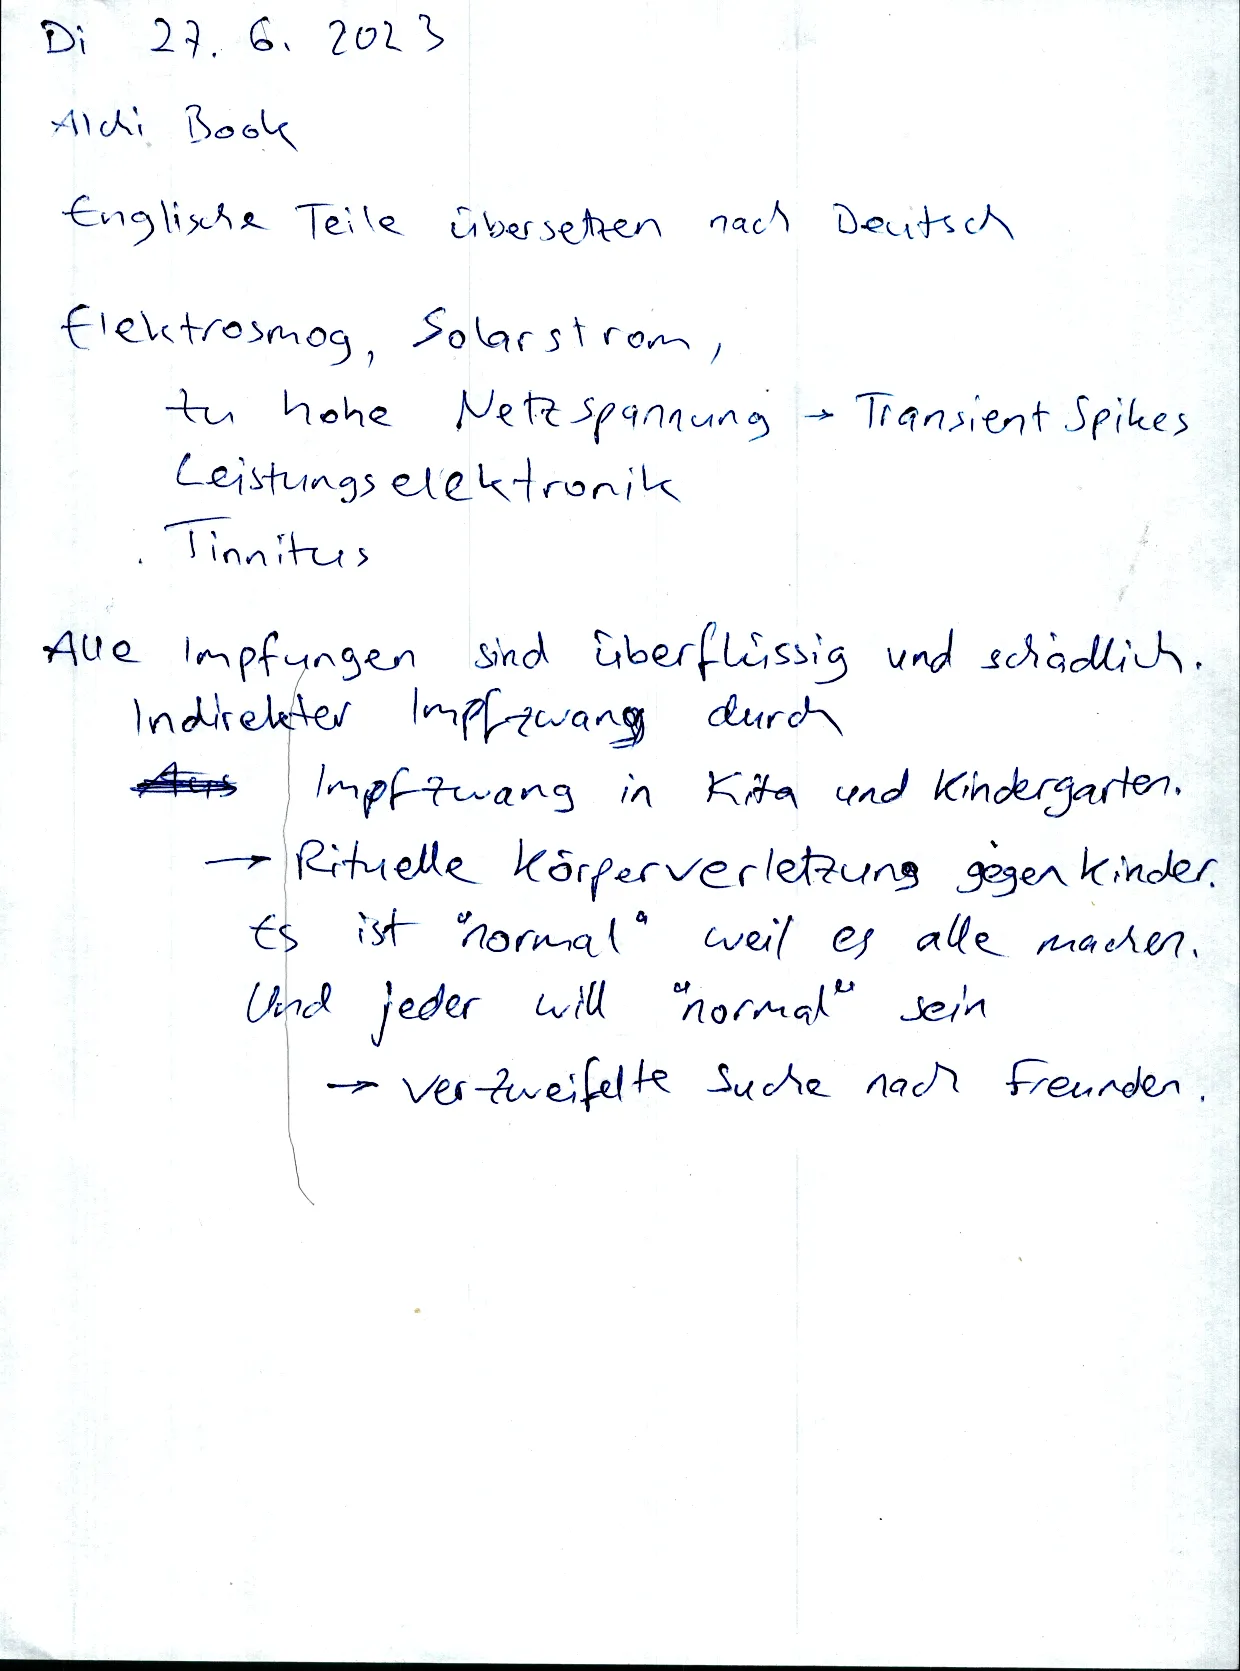 Di 27. 6. 2023
Alchi Book
Englische Teile übersetzen nach Deutsch
Elektrosmog, Solarstrom,
zu hohe Netzspannung → Transient Spikes
Leistungselektronik
Tinnitus
Alle Impfungen sind überflüssig und schädlich.
Indirekter Impfzwang durch
Impfzwang in Kita und Kindergarten.
→ Rituelle Körperverletzung gegen Kinder.
Es ist "normal" weil es alle machen.
Und jeder will "normal" sein
→ verzweifelte Suche nach Freunden.